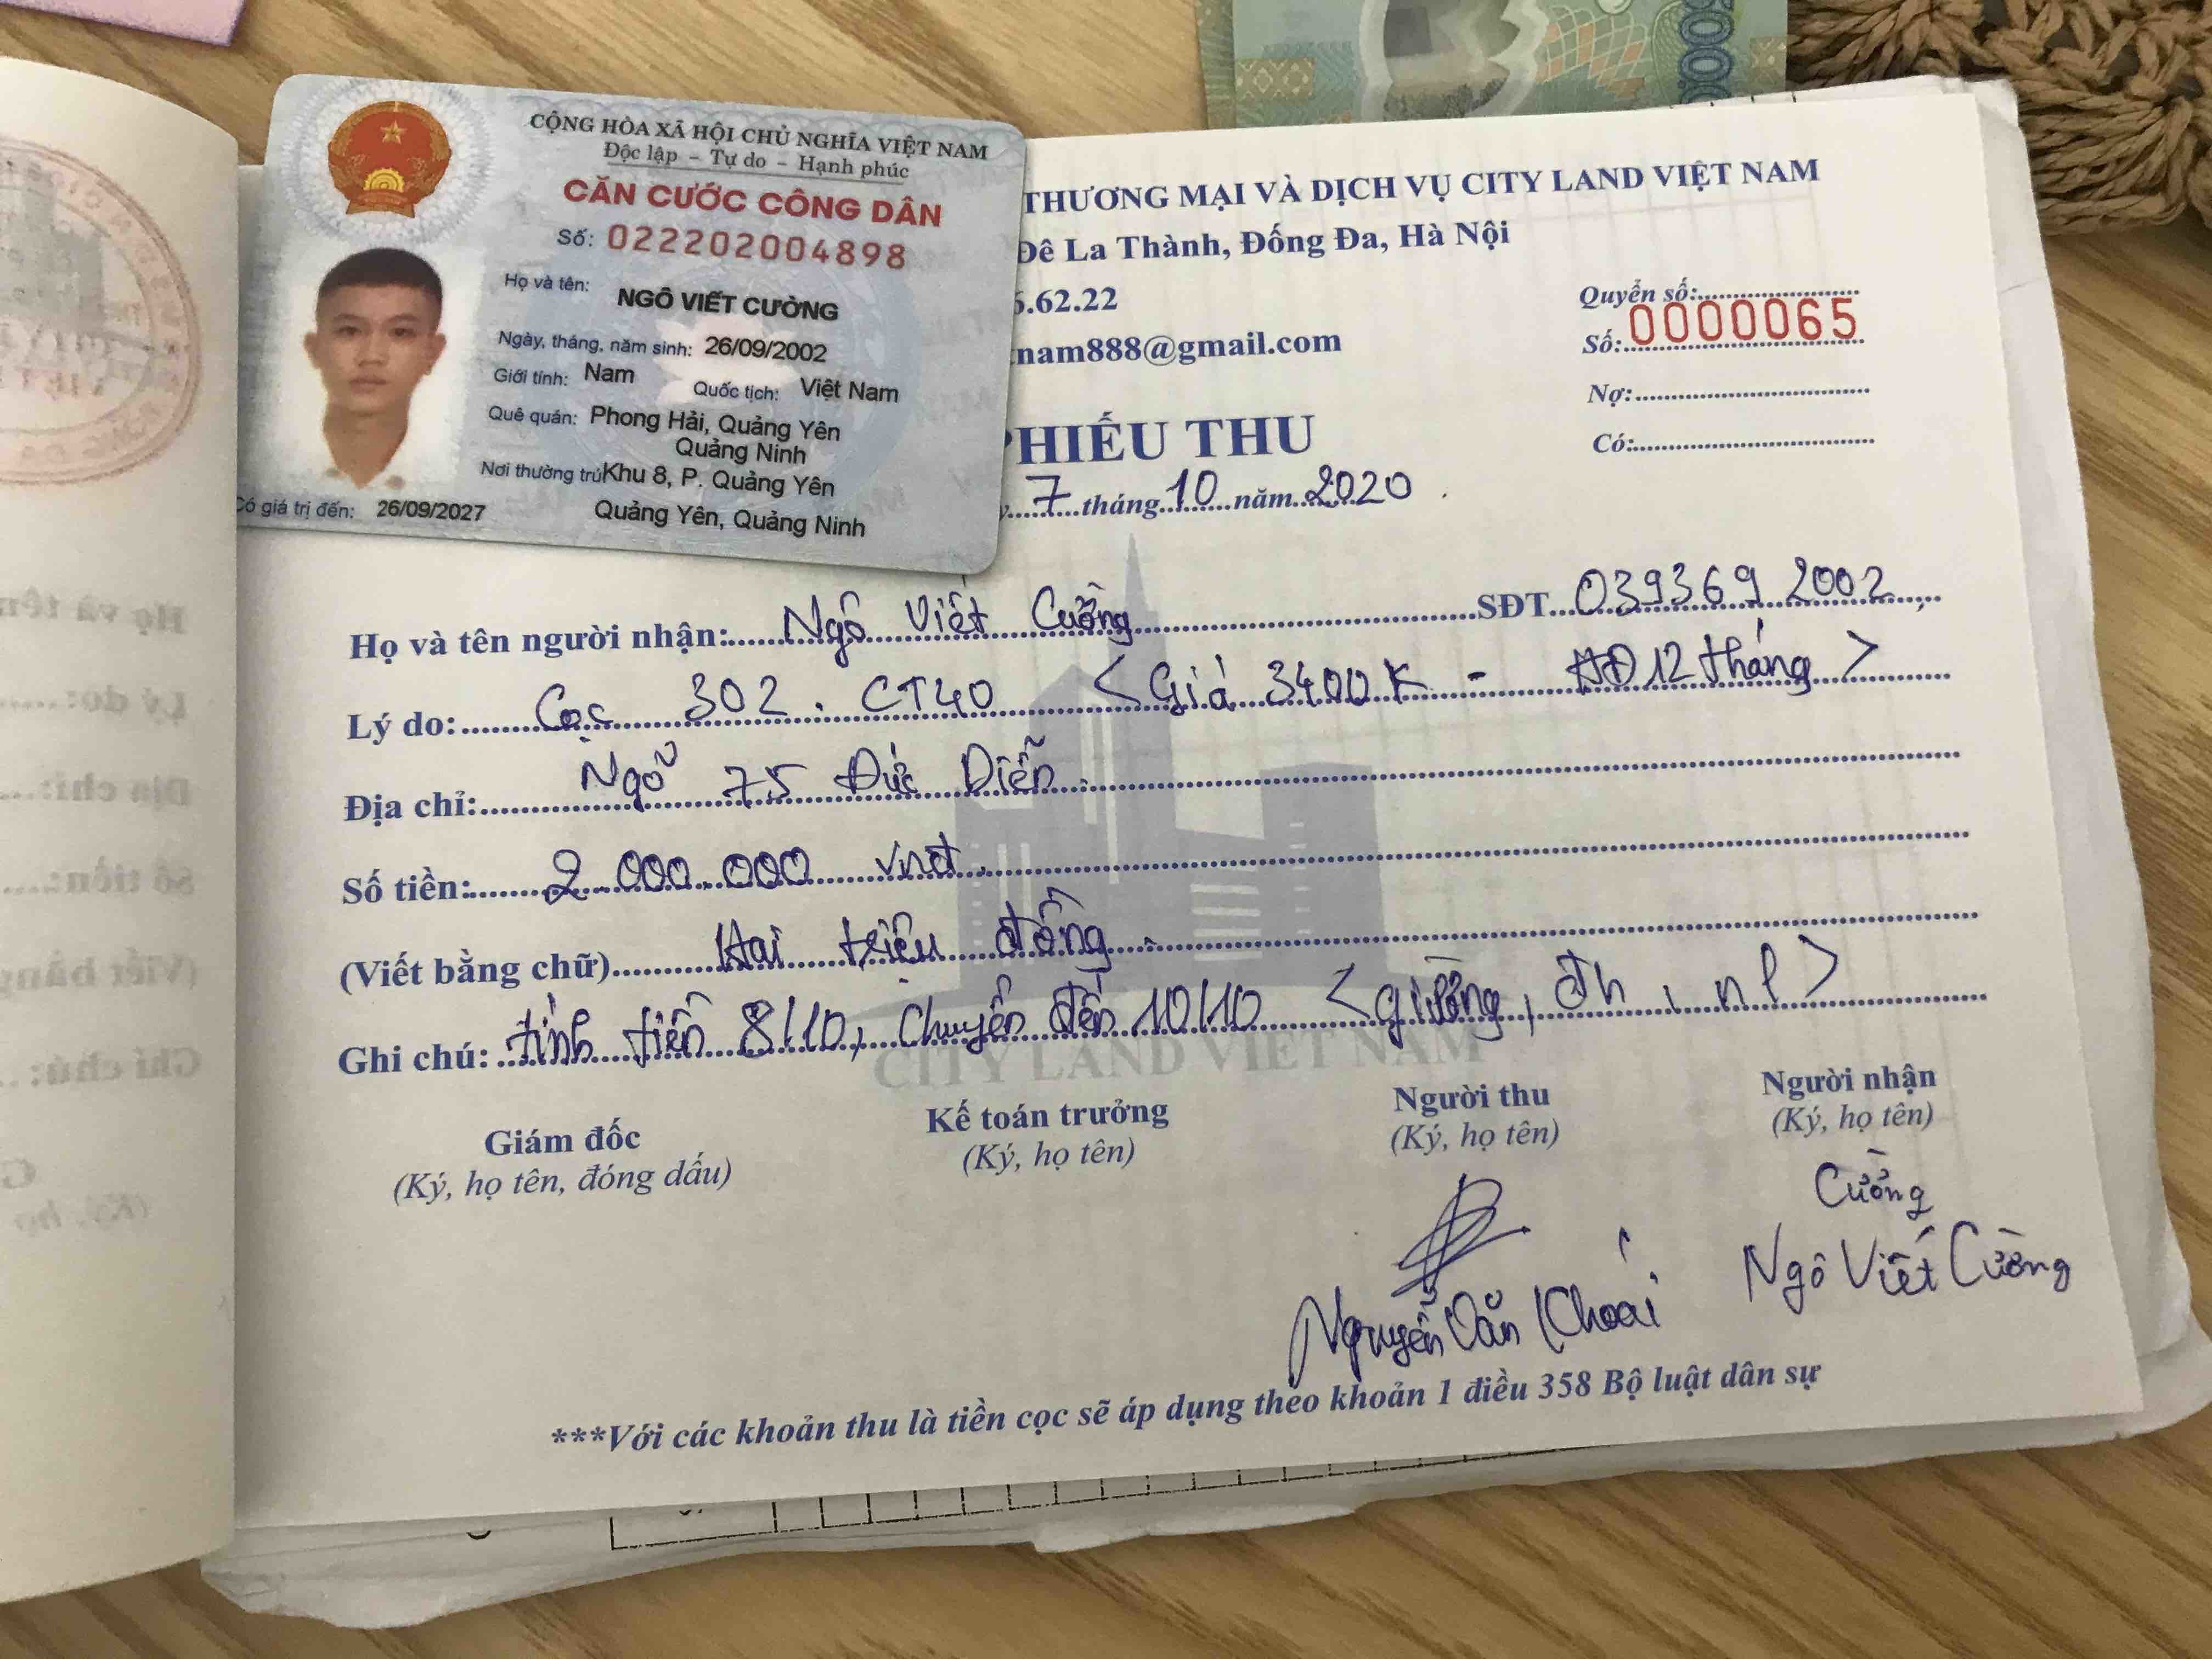 CỘNG HÒA XÃ HỘI CHỦ NGHĨA VIỆT NAM
Độc lập – Tự do – Hạnh phúc
CĂN CƯỚC CÔNG DÂN
Số: 022202004898
Họ và tên: NGÔ VIẾT CƯỜNG
Ngày, tháng, năm sinh: 26/09/2002
Giới tính: Nam Quốc tịch: Việt Nam
Quê quán: Phong Hải, Quảng Yên
Quảng Ninh
Nơi thường trú Khu 8, P. Quảng Yên
Quảng Yên, Quảng Ninh
Có giá trị đến: 26/09/2027
THƯƠNG MẠI VÀ DỊCH VỤ CITY LAND VIỆT NAM
Đê La Thành, Đống Đa, Hà Nội
6.62.22
nam888@gmail.com
Quyển số:
Số: 0000065
Nợ:
Có:
PHIẾU THU
7 tháng 10 năm 2020
Họ và tên người nhận: Ngô Viết Cường SĐT 039369 2002
Lý do: Cọc 302. CT40 <Giá 3400K - HĐ 12 tháng>
Địa chỉ: Ngõ 75 Đức Diễn.
Số tiền: 2.000.000 vnđ.
(Viết bằng chữ) Hai triệu đồng.
Ghi chú: tính tiền 8/10, chuyển đến 10/10 <giường, đh, nl>
CITY LAND VIỆT NAM
Giám đốc
(Ký, họ tên, đóng dấu)
Kế toán trưởng
(Ký, họ tên)
Người thu
(Ký, họ tên)
Người nhận
(Ký, họ tên)
Cường
Nguyễn Văn Khoái
Ngô Viết Cường
***Với các khoản thu là tiền cọc sẽ áp dụng theo khoản 1 điều 358 Bộ luật dân sự